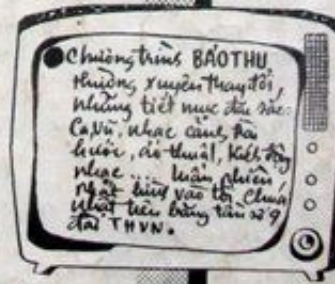 Chương trình BẢO THU
thường xuyên thay đổi,
những tiết mục đặc sắc:
Ca, Vũ, nhạc cảnh, hài
hước, ảo-thuật, kích động
nhạc ... luân phiên
phát hình vào tối Chúa
nhật trên băng tần số 9
đài THVN.